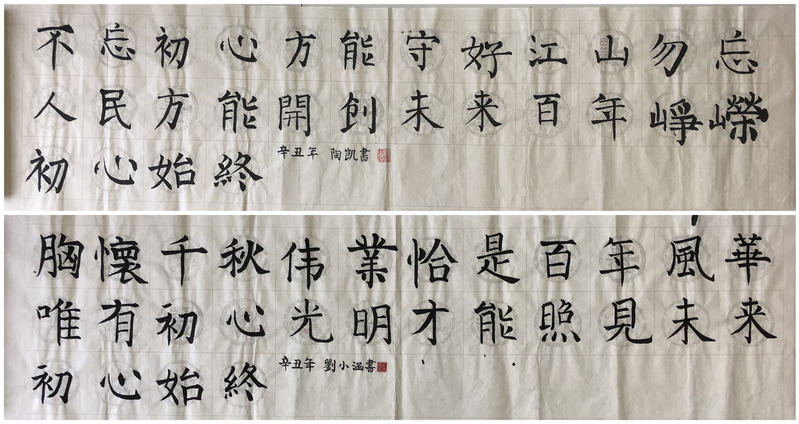 不忘初心方能守好江山勿忘
人民方能開創未来百年崢嶸
初心始終
辛丑年 陶凯書
胸懷千秋伟業恰是百年風華
唯有初心光明才能照見未来
初心始終
辛丑年 劉小涵書